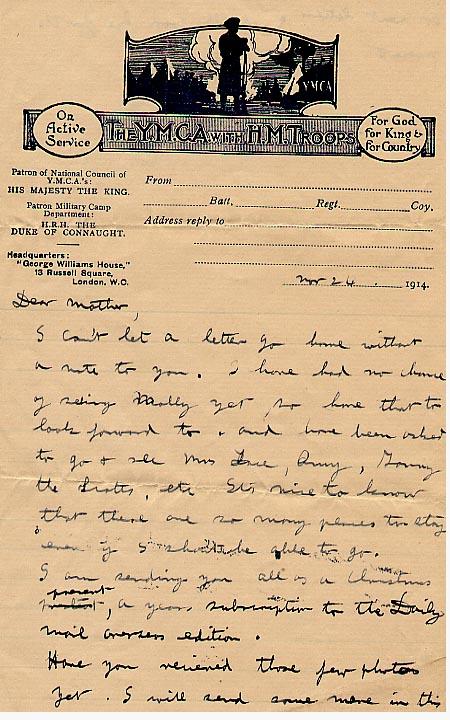 YMCA
On
Active
Service
THE Y.M.C.A. WITH H.M. TROOPS
For God
for King &
for Country
Patron of National Council of
Y.M.C.A.'s:
HIS MAJESTY THE KING.
Patron Military Camp
Department:
H.R.H. THE
DUKE OF CONNAUGHT.
Headquarters:
"George Williams House,"
13 Russell Square,
London, W.C.
From
Batt. Regt. Coy.
Address reply to
Nov 24 1914.
Dear Mother,
I can't let a letter go home without
a note to you. I have had no chance
of seeing Molly yet, so have that to
look forward to, and have been asked
to go & see Mrs
the Scotts, etc Its nice to know
that there are so many places to stay
even if I shan't be able to go.
I am sending you all as a Christmas
present, a years subscription to the Daily
mail overseas edition.
Have you received those few photos
yet. I will send some more in this